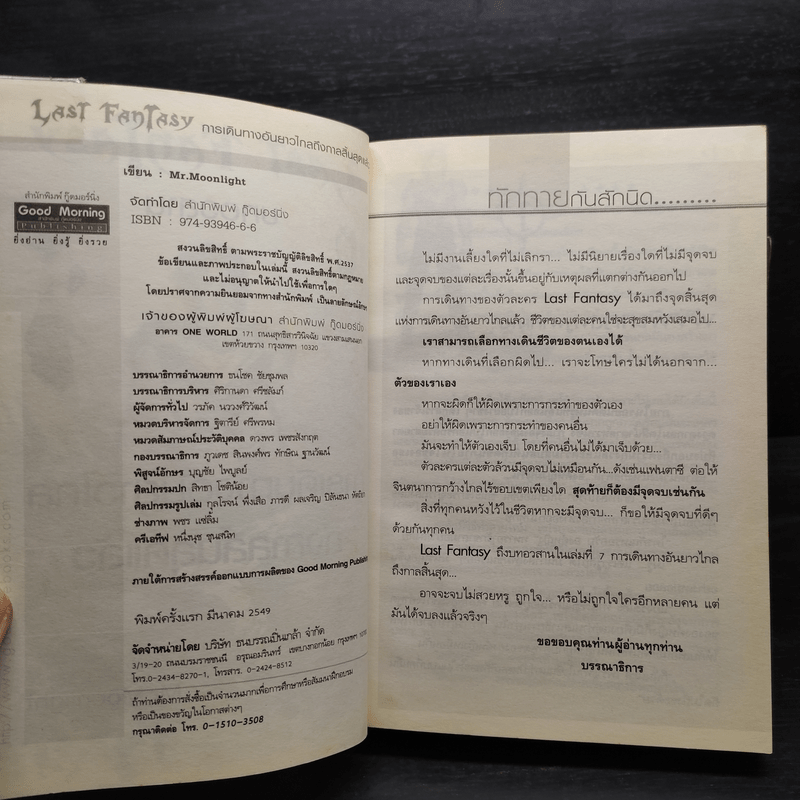 Last Fantasy การเดินทางอันยาวไกลถึงกาลสิ้นสุดแล้ว
สำนักพิมพ์ กู๊ดมอร์นิ่ง
Good Morning
[Publishing]
ยิ่งอ่าน ยิ่งรู้ ยิ่งรวย
เขียน : Mr.Moonlight
จัดทำโดย สำนักพิมพ์ กู๊ดมอร์นิ่ง
ISBN : 974-93946-6-6
สงวนลิขสิทธิ์ ตามพระราชบัญญัติลิขสิทธิ์ พ.ศ.2537
ข้อเขียนและภาพประกอบในเล่มนี้ สงวนลิขสิทธิ์ตามกฎหมาย
และไม่อนุญาตให้นำไปใช้เพื่อการใดๆ
โดยปราศจากความยินยอมจากทางสำนักพิมพ์ เป็นลายลักษณ์อักษร
เจ้าของผู้พิมพ์ผู้โฆษณา สำนักพิมพ์ กู๊ดมอร์นิ่ง
อาคาร ONE WORLD 171 ถนนสุทธิสารวินิจฉัย แขวงสามเสนนอก
เขตห้วยขวาง กรุงเทพฯ 10320
บรรณาธิการอำนวยการ ธนโชค ชัยชุมพล
บรรณาธิการบริหาร ศิริกานดา ศรีชลัมภ์
ผู้จัดการทั่วไป วรภัค นววงศ์วิวัฒน์
หมวดบริหารจัดการ ฐิตารีย์ ศรีพรหม
หมวดสัมภาษณ์ประวัติบุคคล ดวงพร เพชรสังกฤต
กองบรรณาธิการ ภูวเดช สินพงศ์พร ทักษิณ ฐานวัฒน์
พิสูจน์อักษร บุญชัย ไพบูลย์
ศิลปกรรมปก สิทธา โชติน้อย
ศิลปกรรมรูปเล่ม กุลโรจน์ พึ่งเสือ ภารดี ผลเจริญ ปิลันธนา
ช่างภาพ พชร แซ่ลิ้ม
ครีเอทีฟ หนึ่งนุช ชุนสนิท
ภายใต้การสร้างสรรค์ออกแบบการผลิตของ Good Morning Publishing
พิมพ์ครั้งแรก มีนาคม 2549
จัดจำหน่ายโดย บริษัท ธนบรรณปิ่นเกล้า จำกัด
3/19-20 ถนนบรมราชชนนี อรุณอมรินทร์ เขตบางกอกน้อย กรุงเทพฯ
โทร.0-2434-8270-1, โทรสาร. 0-2424-8512
ถ้าท่านต้องการสั่งซื้อเป็นจำนวนมากเพื่อการศึกษาหรือสัมมนาฝึกอบรม
หรือเป็นของขวัญในโอกาสต่างๆ
กรุณาติดต่อ โทร. 0-1510-3508
ทักทายกันสักนิด.........
ไม่มีงานเลี้ยงใดที่ไม่เลิกรา... ไม่มีนิยายเรื่องใดที่ไม่มีจุดจบ
และจุดจบของแต่ละเรื่องนั้นขึ้นอยู่กับเหตุผลที่แตกต่างกันออกไป
การเดินทางของตัวละคร Last Fantasy ได้มาถึงจุดสิ้นสุด
แห่งการเดินทางอันยาวไกลแล้ว ชีวิตของแต่ละคนใช่จะสุขสมหวังเสมอไป...
เราสามารถเลือกทางเดินชีวิตของตนเองได้
หากทางเดินที่เลือกผิดไป... เราจะโทษใครไม่ได้นอกจาก...
ตัวของเราเอง
หากจะผิดก็ให้ผิดเพราะการกระทำของตัวเอง
อย่าให้ผิดเพราะการกระทำของคนอื่น
มันจะทำให้ตัวเองเจ็บ โดยที่คนอื่นไม่ได้มาเจ็บด้วย...
ตัวละครแต่ละตัวล้วนมีจุดจบไม่เหมือนกัน...ดังเช่นแฟนตาซี ต่อให้
จินตนาการกว้างไกลไร้ขอบเขตเพียงใด สุดท้ายก็ต้องมีจุดจบเช่นกัน
สิ่งที่ทุกคนหวังไว้ในชีวิตหากจะมีจุดจบ... ก็ขอให้มีจุดจบที่ดีๆ
ด้วยกันทุกคน
Last Fantasy ถึงบทอวสานในเล่มที่ 7 การเดินทางอันยาวไกล
ถึงกาลสิ้นสุด...
อาจจะจบไม่สวยหรู ถูกใจ... หรือไม่ถูกใจใครอีกหลายคน แต่
มันได้จบลงแล้วจริงๆ
ขอขอบคุณท่านผู้อ่านทุกท่าน
บรรณาธิการ